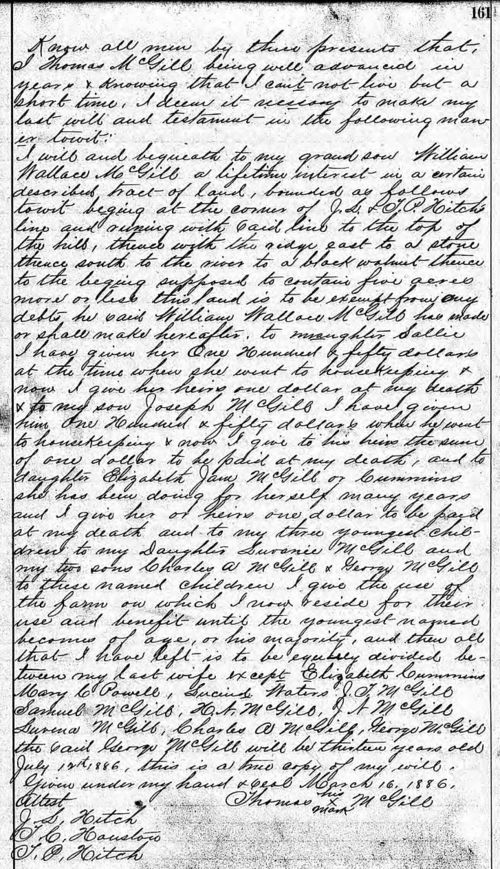 161
Know all men by these presents that,
I Thomas McGill being well advanced in
years & knowing that I can't not live but a
short time, I deem it necessary to make my
last will and testament in the following man
er towit:
I will and bequeath to my grand son William
Wallace McGill a lifetime interest in a certain
described tract of land, bounded as follows
towit beging at the corner of J. S. & T. P. Hitch's
line and runing with said line to the top of
the hill, thence with the ridge east to a stone
thence south to the river to a black walnut thence
to the beging supposed to contain five acres
more or less this land is to be exempt from any
debts he said William Wallace McGill has made
or shall make hereafter. to Sallie
I have given her One Hundred & fifty dollars
at the time when she went to housekeeping &
now I give her heirs one dollar at my death
& to my son Joseph McGill I have given
him One Hundred & fifty dollars when he went
to housekeeping & now I give to his heirs the sum
of one dollar to be paid at my death, and to
daughter Elizabeth Jane McGill or Cummins
she has been doing for herself many years
and I give her or heirs one dollar to be paid
at my death and to my three youngest chil-
dren to my Daughter McGill and
my two sons Charles A McGill & George McGill
to these named children I give the use of
the farm on which I now reside for their
use and benefit until the youngest named
becomes of age, or his majority, and then all
that I have left is to be divided be-
tween my last wife except Elizabeth Cummins
Mary C Powell, Waters J. T. McGill
Samuel McGill, H. N. McGill, J. N. McGill
Surena McGill, Charles A McGill, George McGill
the said George McGill will be thirteen years old
July 1886, this is a true copy of my will.
Given under my hand & seal March 16, 1886.
Attest Thomas his x mark McGill
J. S. Hitch
T. C. Houston
T. P. Hitch